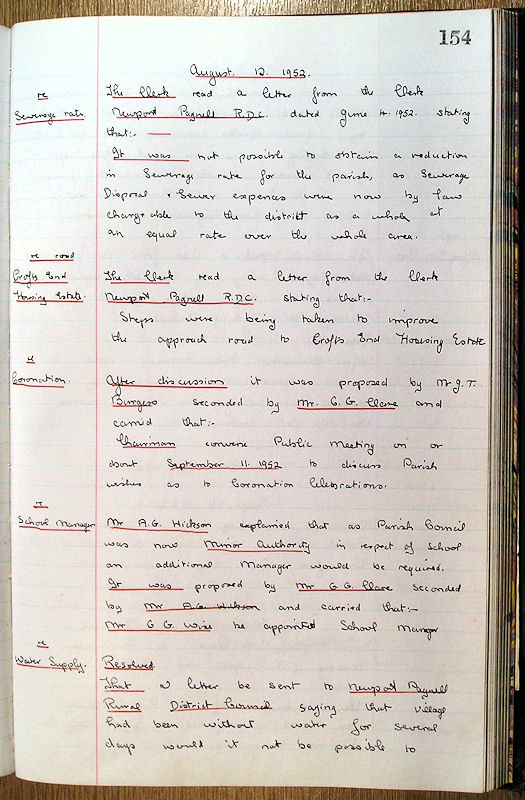 154
August. 12. 1952.
re
Sewerage rate.
The Clerk read a letter from the Clerk
Newport Pagnell R.D.C. dated June 4. 1952. stating
that:-
It was not possible to obtain a reduction
in Sewerage rate for the parish, as Sewerage
Disposal + Sewer expences were now by law
chargeable to the district as a whole at
an equal rate over the whole area.
re road
Crofts End
Housing Estate.
The Clerk read a letter from the Clerk
Newport Pagnell R.D.C. stating that:-
Steps were being taken to improve
the approach road to Crofts End Housing Estate
Coronation.
After discussion it was proposed by Mr J. T.
Burgess seconded by Mr. G. G. Clare and
carrid that:-
Chairman convene Public Meeting on or
about September 11. 1952 to discuss Parish
wishes as to Coronation Celebrations.
School Manager
Mr A.G. Hickson explained that as Parish Council
was now Minor Authority in respect of School
an additional Manager would be required.
It was proposed by Mr G G. Clare seconded
by Mr A.G. Hickson and carried that:-
Mr G G Wise be appointed School Manager
re
Water Supply.
Resolved.
That a letter be sent to Newport Pagnell
Rural District Council saying that village
had been without water for several
days would it not be possible to